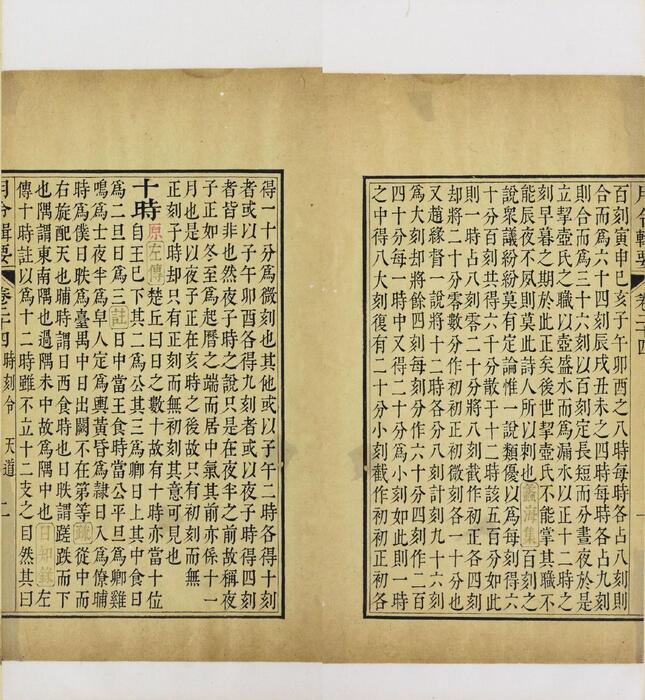 月令輯要 卷二十四 一
百刻寅申巳亥子午卯酉之八時每時各占八刻則
合而爲六十四刻辰戌丑未之四時每時各占九刻
則合而爲三十六刻以百刻定長短而分晝夜於是
立挈壺氏之職以壺盛水而爲漏水以正十二時之
刻早暮之期於此正矣後世挈壺氏不能掌其職不
能辰夜不夙則莫此詩人所以刺也蠡海集百刻之
說衆議紛紛莫有定論惟一說類優以爲每刻得六
十分百刻共得六千分散于十二時該五百分如此
則一時占八刻零二十分將八刻截作初正各四刻
却將二十分零數分作初初正初微刻各一十分也
又趙緣督一說將十二時各分八刻計刻九十六刻
爲大刻却將餘四刻每刻分作六十分四刻作二百
四十分每一時中又得二十分爲小刻如此則一時
之中得八大刻復有二十分小刻截作初初正初各
得一十分爲微刻也其他或以子午二時各得十刻
者或以子午卯酉各得九刻者或以夜子時得四刻
者皆非也然夜子時之說只是在夜半之前故稱夜
子正如冬至爲起曆之端而居中氣其前亦係十一
月也是以夜子正在亥時之後故只有初刻而無
正刻子時却只有正刻而無初刻其意可見也
十時原左傳楚丘曰日之數十故有十時亦當十位
自王已下其二爲公其三爲卿日上其中食日
爲二旦日爲三註日中當王食時當公平旦爲卿雞
鳴爲士夜半爲皁人定爲輿黃昏爲隸日入爲僚晡
時爲僕日昳爲臺禺中日出闕不在第等疏從中而
右旋配天也晡時謂日西食時也日昳謂蹉跌而下
也隅謂東南隅也過隅未中故爲隅中也日知錄左
傳十時註以爲十二時雖不立十二支之目然其曰
月令輯要 卷二十四 時刻令 天道 二